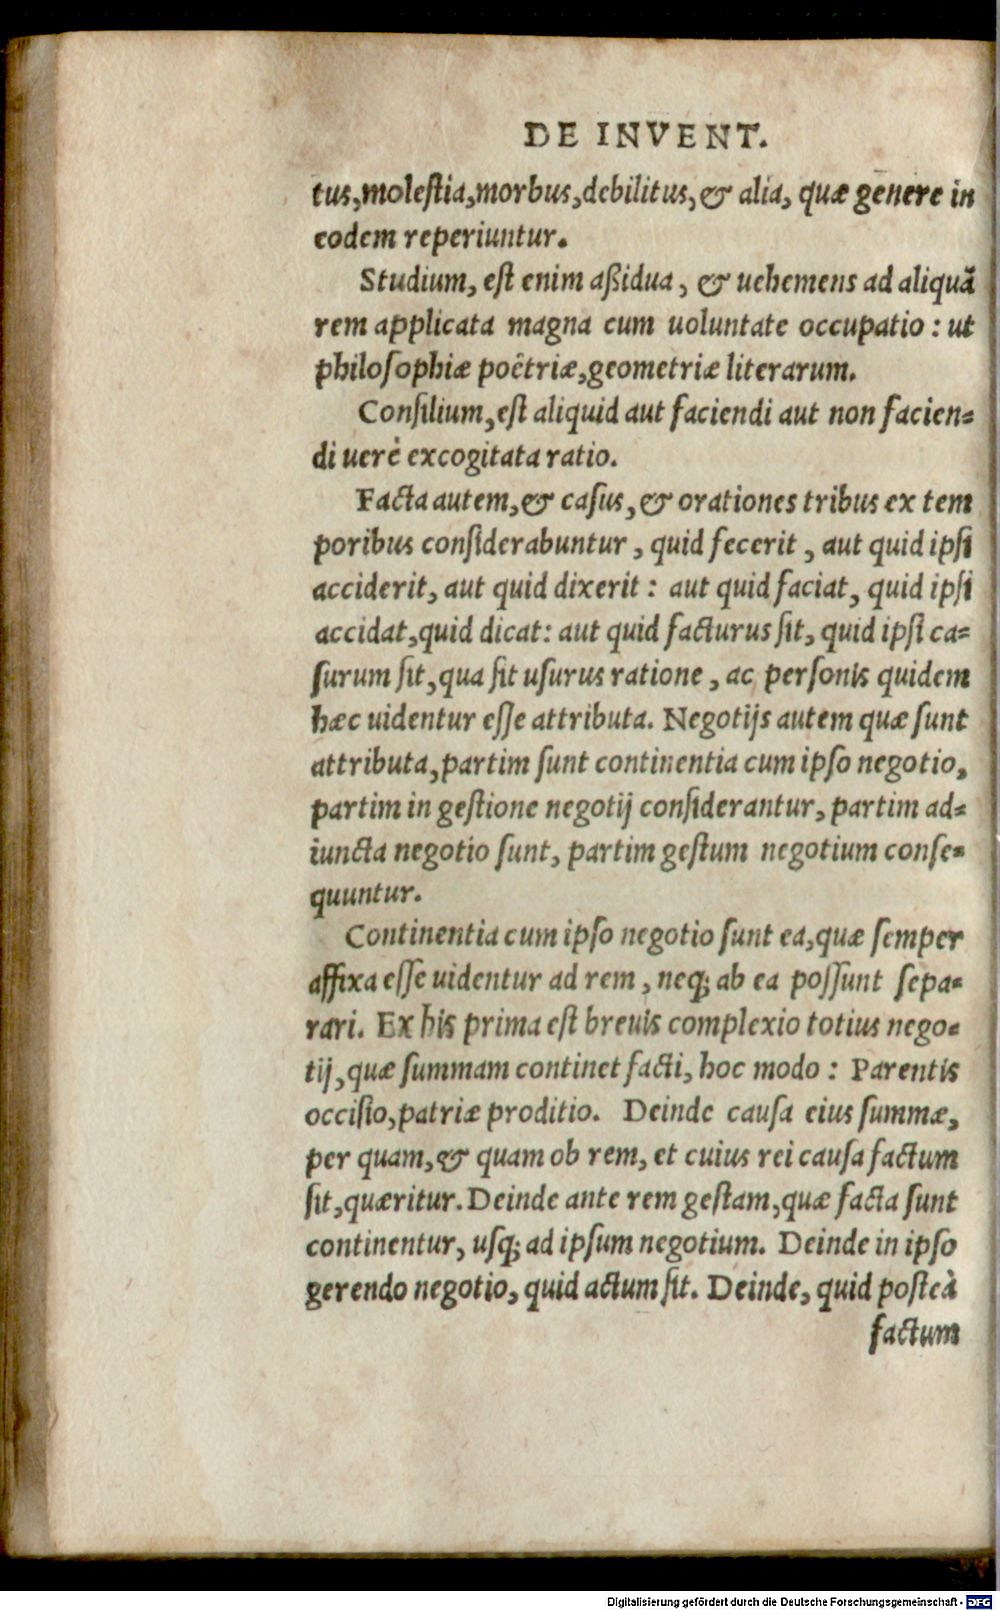 DE INVENT.
tus, molestia, morbus, debilitus, & alia, quæ genere in
eodem reperiuntur.
Studium, est enim aßidua, & uehemens ad aliquã
rem applicata magna cum uoluntate occupatio: ut
philosophiæ poëtriæ, geometriæ literarum.
Consilium, est aliquid aut faciendi aut non facien-
di uerè excogitata ratio.
Facta autem, & casus, & orationes tribus ex tem
poribus considerabuntur, quid fecerit, aut quid ipsi
acciderit, aut quid dixerit: aut quid faciat, quid ipsi
accidat, quid dicat: aut quid facturus sit, quid ipsi ca-
surum sit, qua sit usurus ratione, ac personis quidem
hæc uidentur esse attributa. Negotijs autem quæ sunt
attributa, partim sunt continentia cum ipso negotio,
partim in gestione negotij considerantur, partim ad-
iuncta negotio sunt, partim gestum negotium conse-
quuntur.
Continentia cum ipso negotio sunt ea, quæ semper
affixa esse uidentur ad rem, neq; ab ea possunt sepa-
rari. Ex his prima est breuis complexio totius nego-
tij, quæ summam continet facti, hoc modo: Parentis
occisio, patriæ proditio. Deinde causa eius summæ,
per quam, & quam ob rem, et cuius rei causa factum
sit, quæritur. Deinde ante rem gestam, quæ facta sunt
continentur, usq; ad ipsum negotium. Deinde in ipso
gerendo negotio, quid actum sit. Deinde, quid posteà
factum
Digitalisierung gefördert durch die Deutsche Forschungsgemeinschaft - DFG